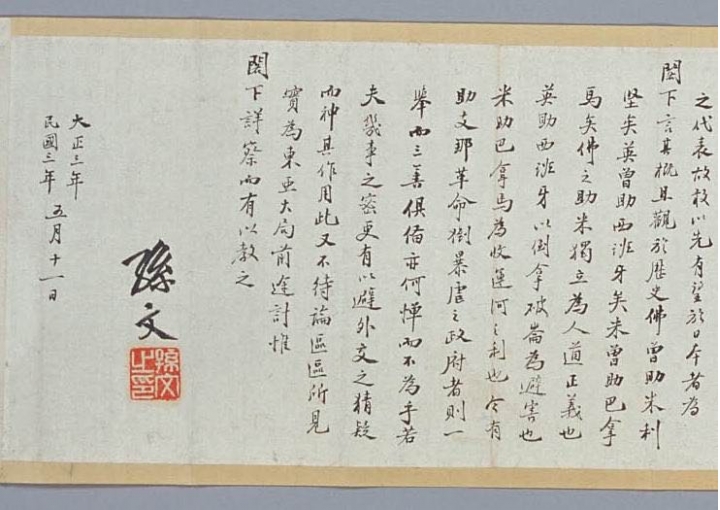 之代表故敢以先有望於日本者為
閣下言其概且觀於歷史佛曾助米利
堅矣英曾助西班牙矣米曾助巴拿
馬矣佛之助米獨立為人道正義也
英助西班牙以倒拿破崙為避害也
米助巴拿馬為收運河之利也今有
助支那革命倒暴虐之政府者則一
舉而三善俱備亦何憚而不為乎若
夫幾事之密更有以避外交之猜疑
而神其作用此又不待論區區所見
實為東亜大局前途計惟
閣下詳察而有以教之
孫文
孫文之印
大正三年
民國三年 五月十一日